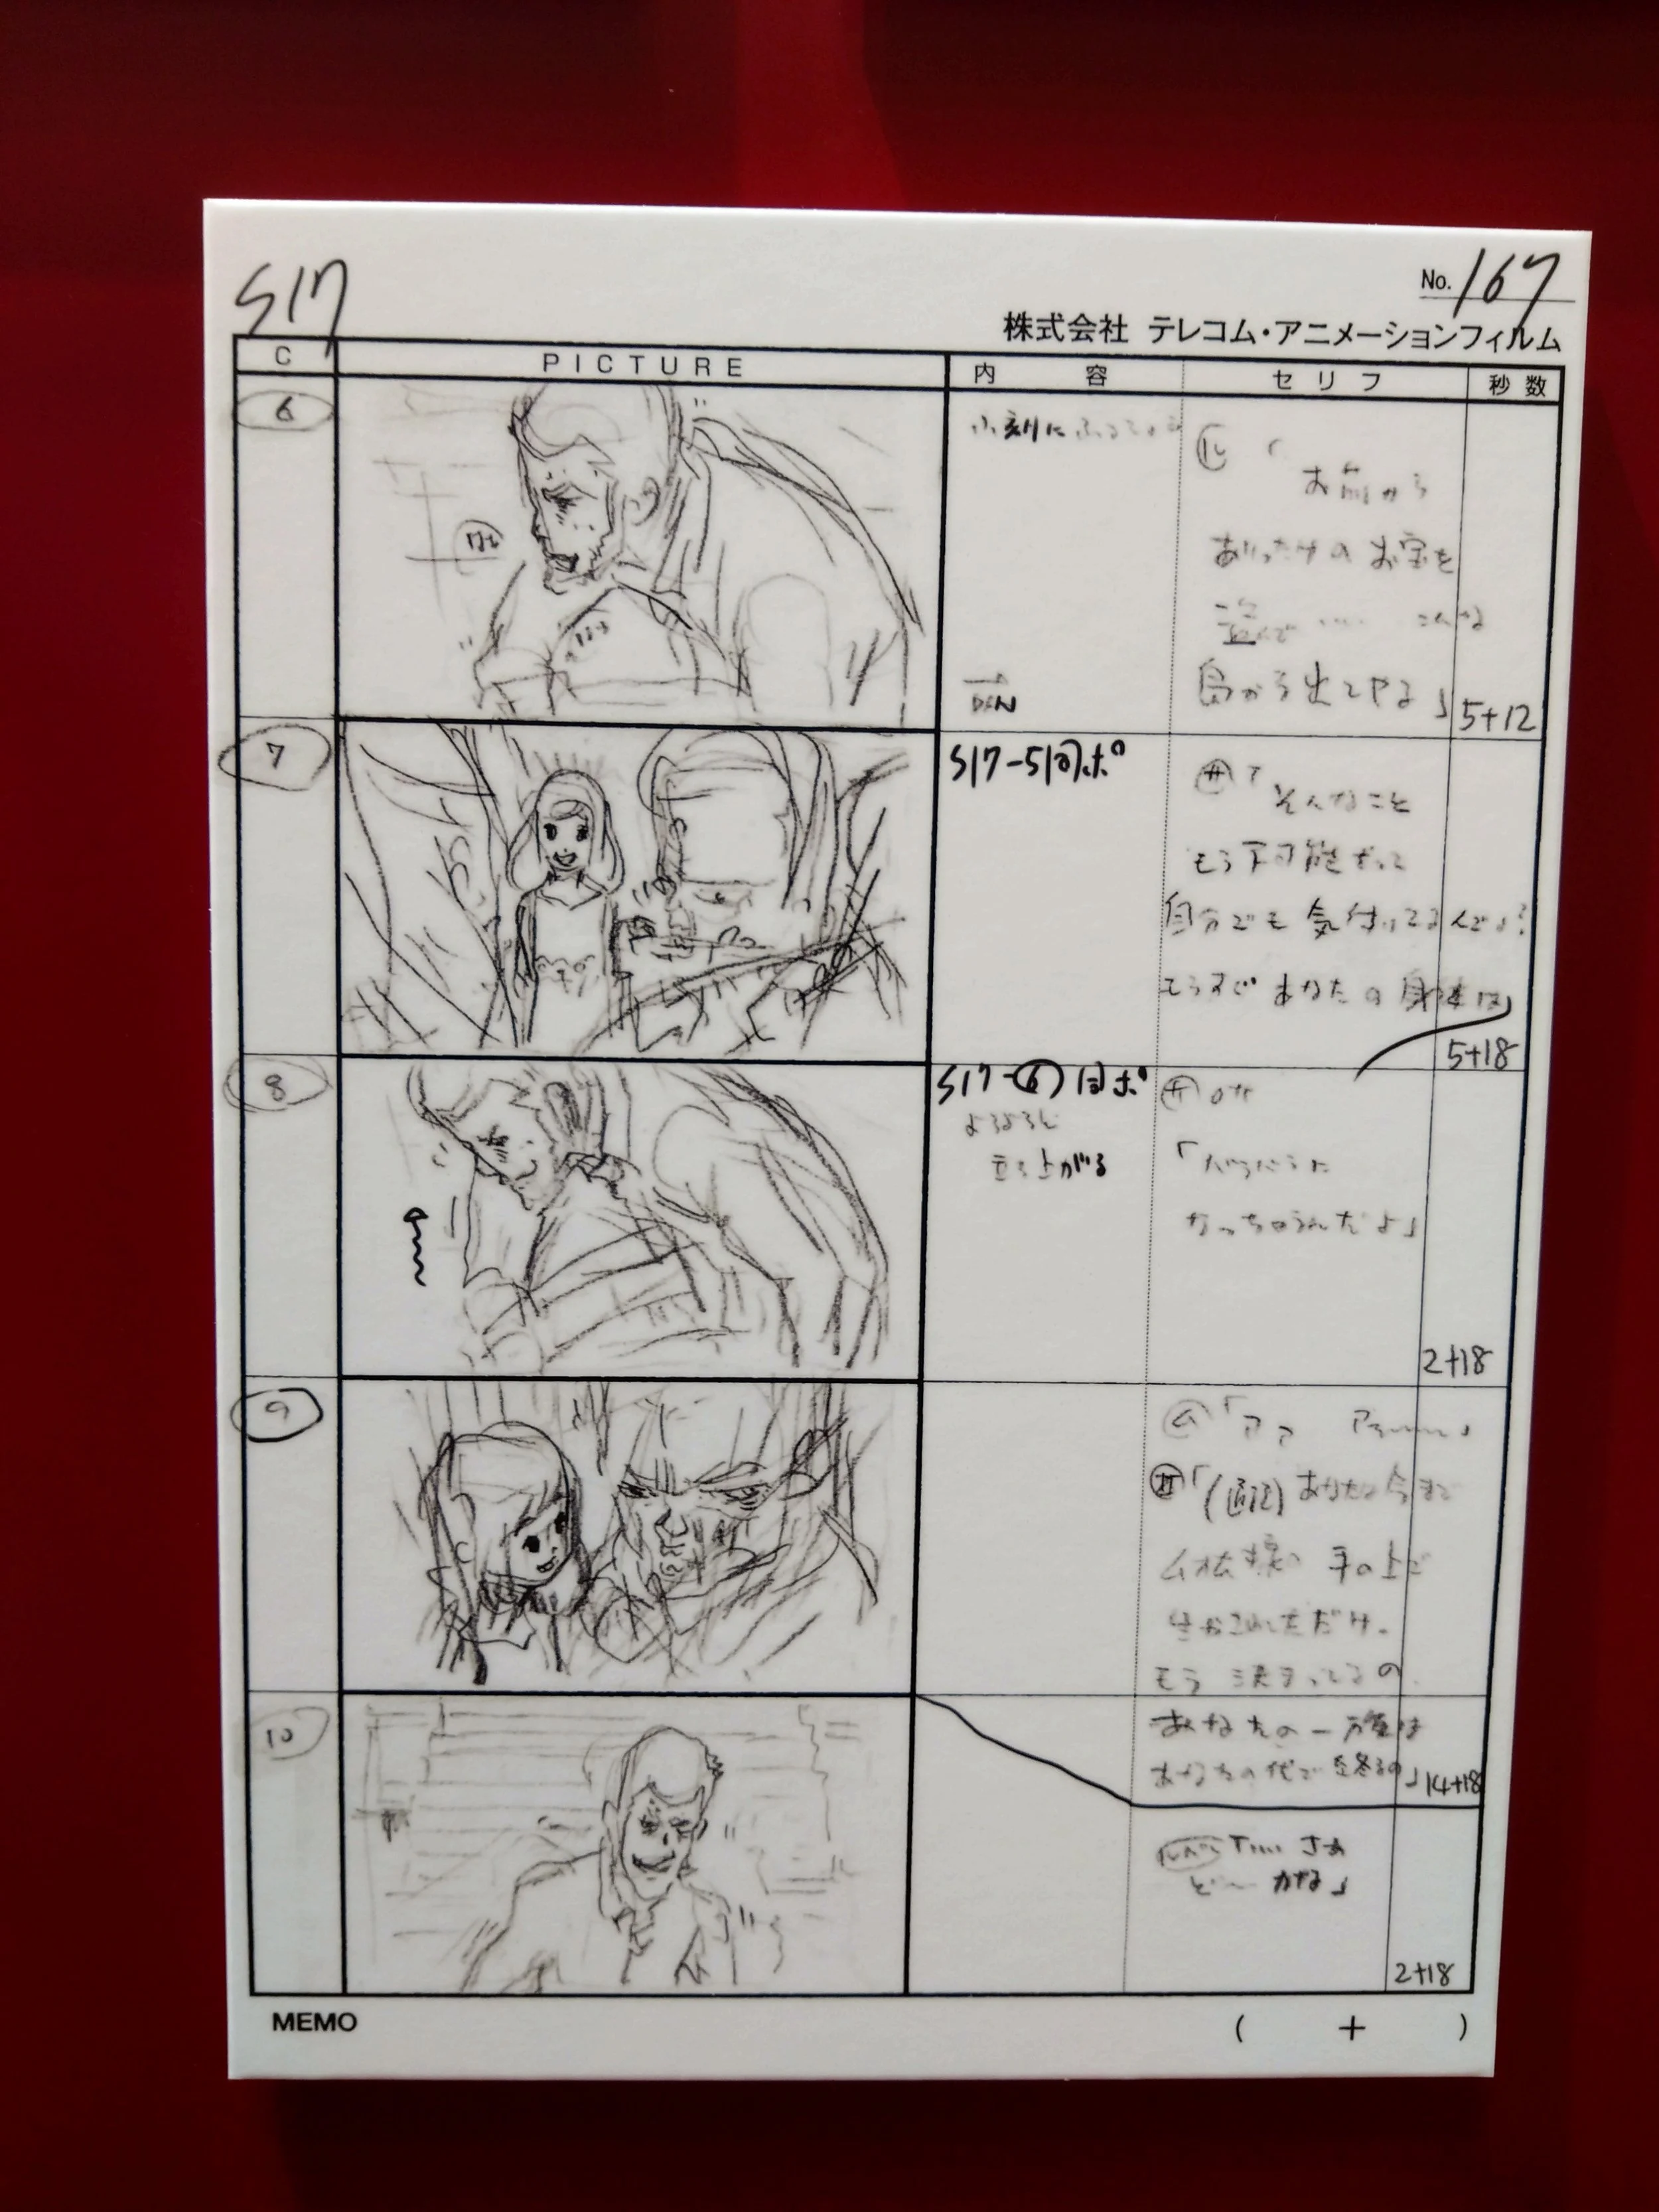 S17
No. 167
株式会社 テレコム・アニメーションフィルム
C
PICTURE
内容
セリフ
秒数
6
小刻にふるえる
ル「
お前から
ありったけのお宝を
盗んで …… こんな
島から出てやる」
5+12
7
S17-5同ポ
サ「そんなこと
もう不可能だって
自分でも気付いてるんでしょ?
もうすぐあなたの身体は」
5+18
8
S17-6同ポ
よろよろと
立ち上がる
サ
「バラバラに
なっちゃうんだよ」
2+18
9
ム「アア
サ「あなたは今まで
ムオム様の手の上で
生かされてただけ。
もう決まってるの
あなたの一族は
あなたの代で終るの」
14+18
10
ルパン「…… さあ
かな」
2+18
MEMO
( + )